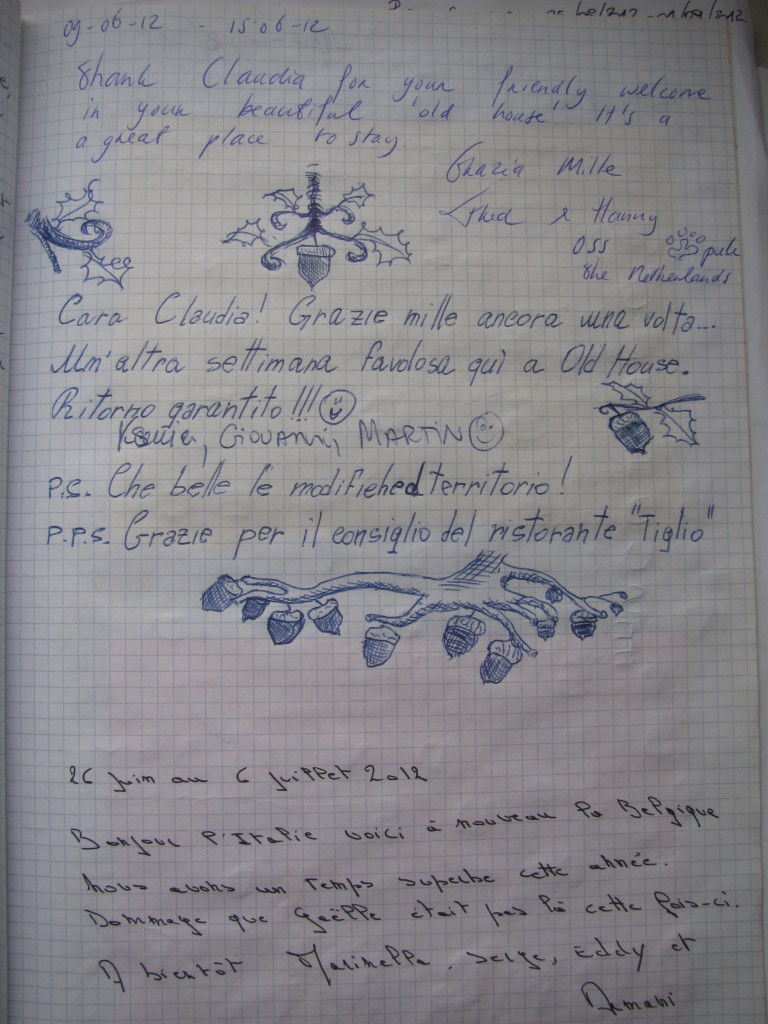 09-06-12 - 15-06-12
Thank Claudia for your friendly welcome
in your beautiful 'old house'. It's a
a great place to stay.
Grazia Mille
& Hanny
OSS
The Netherlands
Cara Claudia! Grazie mille ancora una volta...
Un'altra settimana favolosa quì a Old House.
Ritorno garantito!!!
GIOVANNI, MARTIN
P.S. Che belle le territorio!
P.P.S. Grazie per il consiglio del ristorante "Tiglio"
26 Juin au 6 Juillet 2012
Bonjour l'Italie voici à nouveau la Belgique
Nous avons un temps superbe cette année.
Dommage que Gaëlle était pas là cette fois-ci.
A bientôt Serge, Eddy et